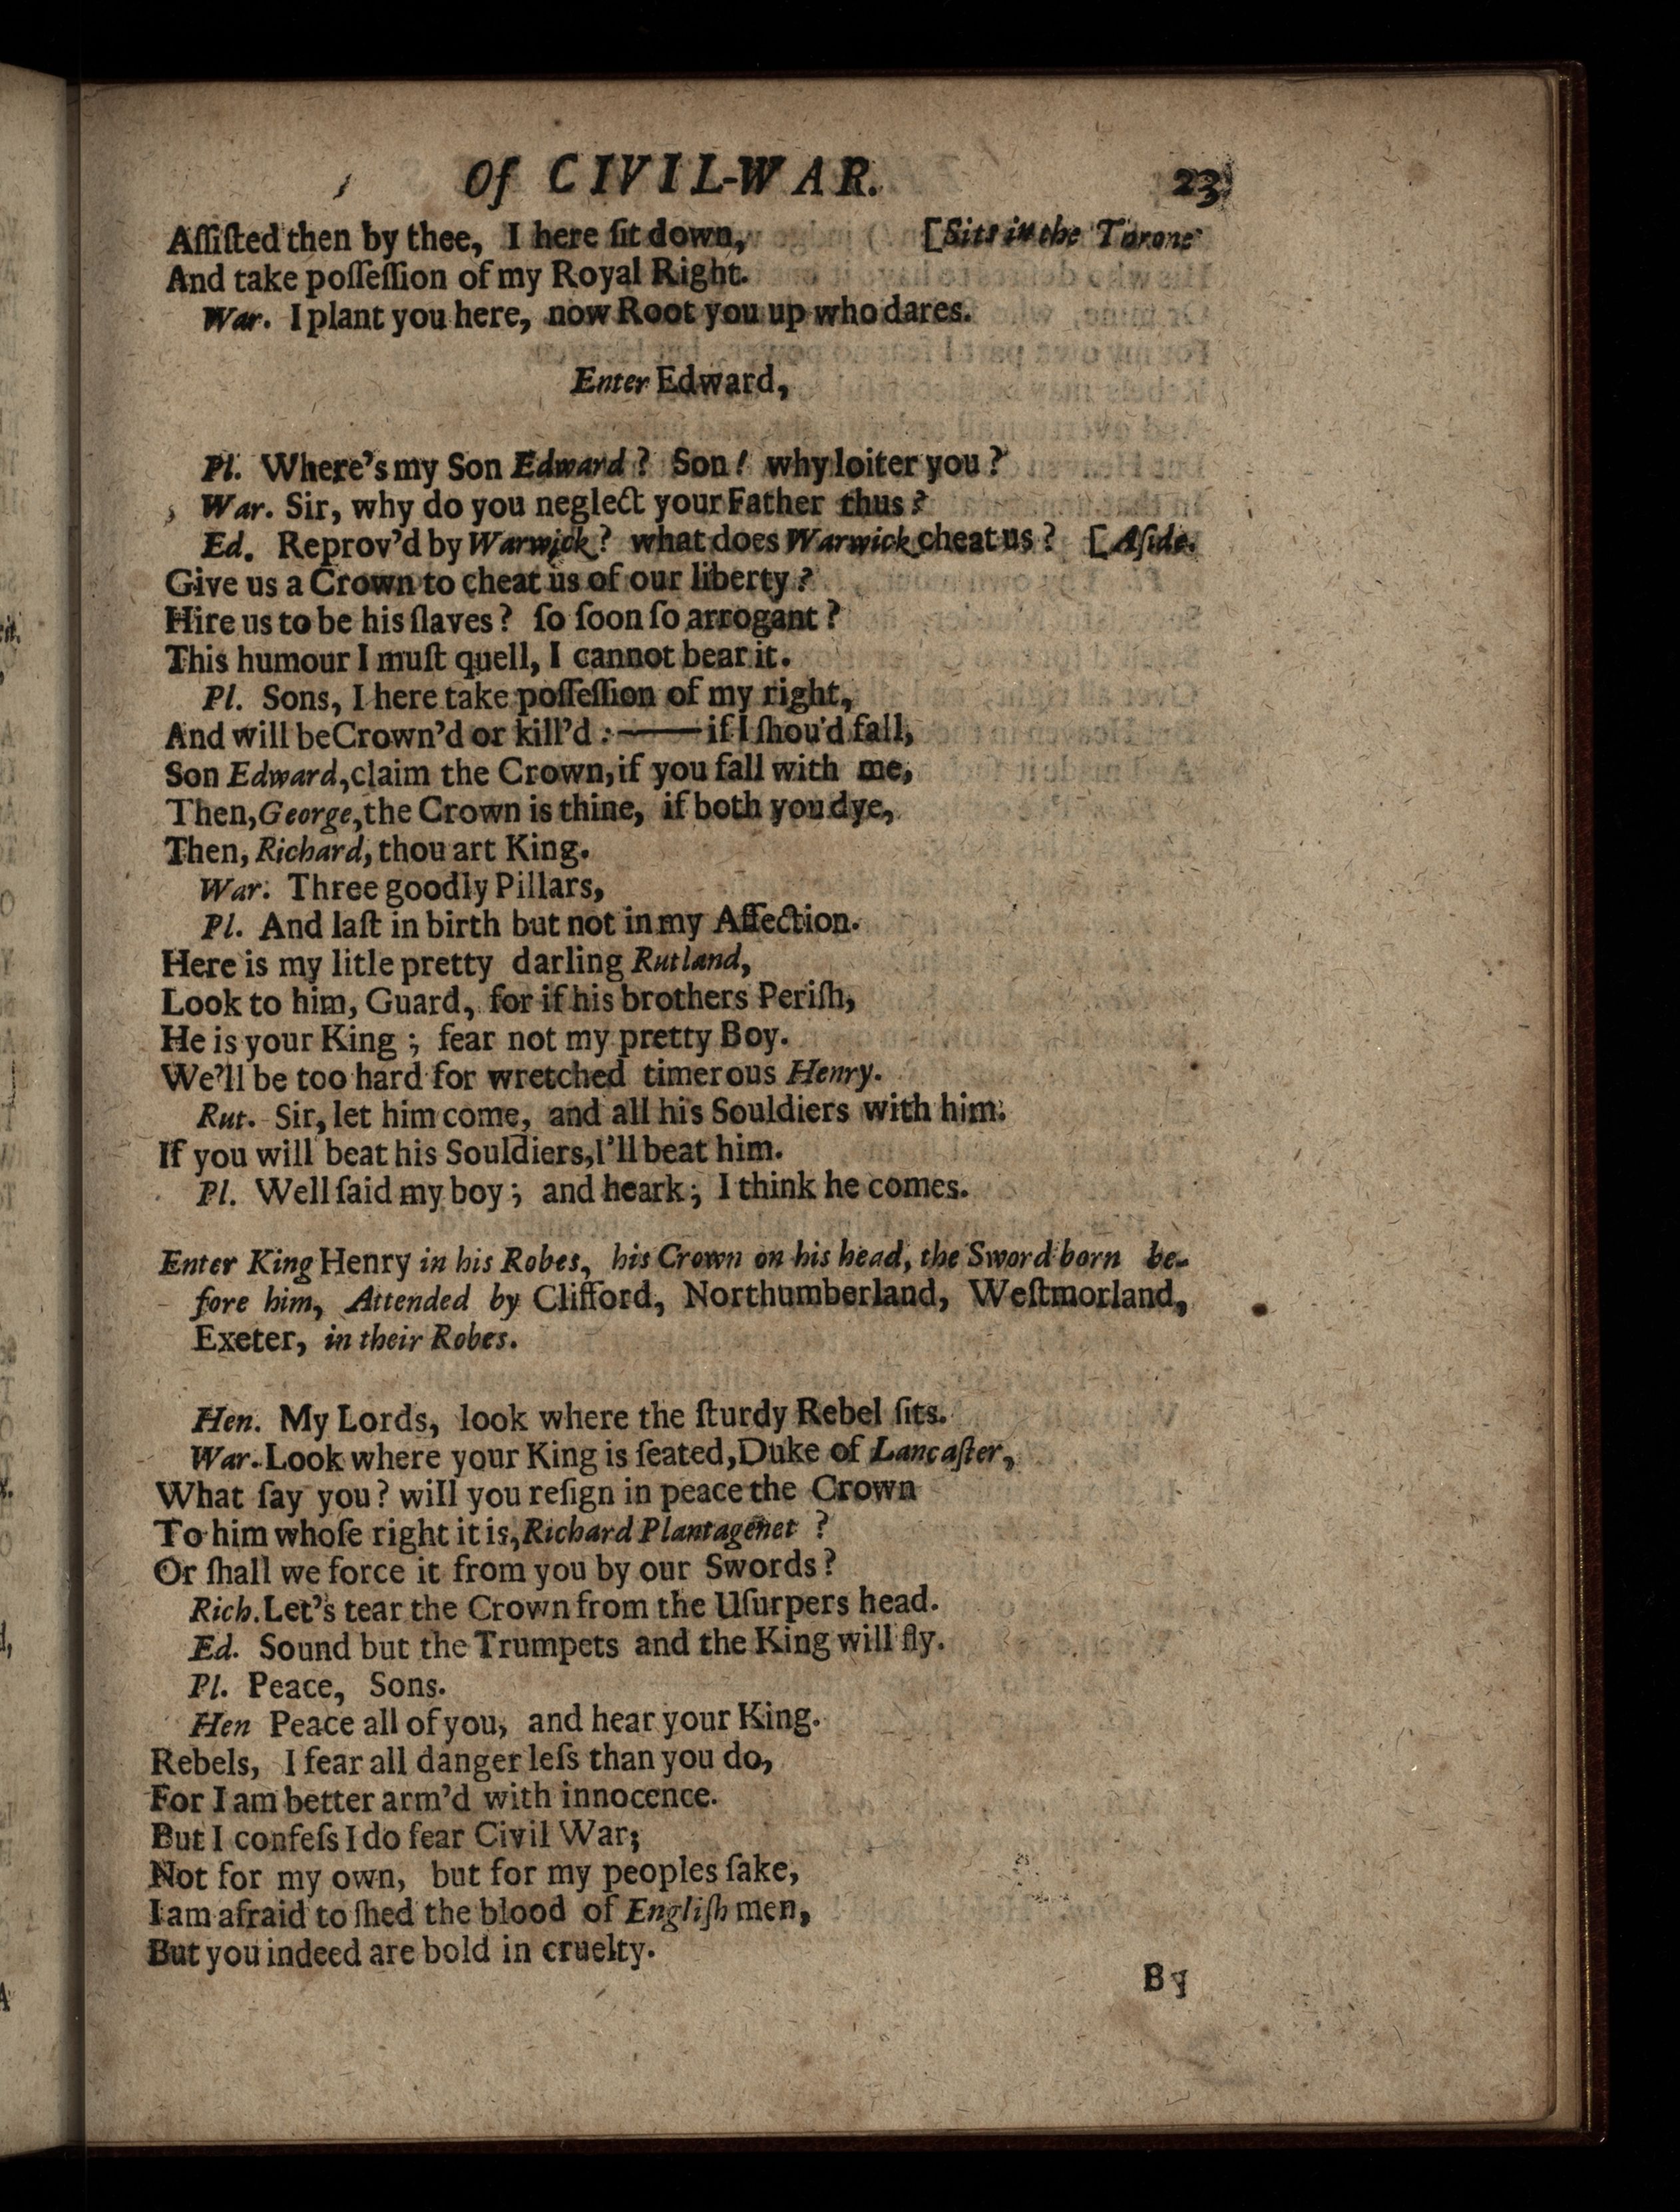 Of CIVIL-WAR. 23.
Aſſiſted then by thee, I here ſit down, [Sits in the Throne
And take poſſeſſion of my Royal Right.
War. I plant you here, now Root you up who dares.
Enter Edward,
Pl. Where's my Son Edward? Son! why loiter you?
War. Sir, why do you neglect your Father thus?
Ed. Reprov'd by Warwick? what does Warwick cheat us? [Aſide.
Give us a Crown to cheat us of our liberty?
Hire us to be his ſlaves? ſo ſoon ſo arrogant?
This humour I muſt quell, I cannot bear it.
Pl. Sons, I here take poſſeſſion of my right,
And will be Crown'd or kill'd:——if I ſhou'd fall,
Son Edward, claim the Crown, if you fall with me,
Then, George, the Crown is thine, if both you dye,
Then, Richard, thou art King.
War. Three goodly Pillars,
Pl. And laſt in birth but not in my Affection.
Here is my litle pretty darling Rutland,
Look to him, Guard, for if his brothers Periſh,
He is your King; fear not my pretty Boy.
We'll be too hard for wretched timerous Henry.
Rut. Sir, let him come, and all his Souldiers with him.
If you will beat his Souldiers, I'll beat him.
Pl. Well ſaid my boy; and heark; I think he comes.
Enter King Henry in his Robes, his Crown on his head, the Sword born be-
fore him, Attended by Clifford, Northumberland, Weſtmorland,
Exeter, in their Robes.
Hen. My Lords, look where the ſturdy Rebel ſits.
War. Look where your King is ſeated, Duke of Lancaſter,
What ſay you? will you reſign in peace the Crown
To him whoſe right it is, Richard Plantagenet?
Or ſhall we force it from you by our Swords?
Rich. Let's tear the Crown from the Uſurpers head.
Ed. Sound but the Trumpets and the King will fly.
Pl. Peace, Sons.
Hen Peace all of you, and hear your King.
Rebels, I fear all danger leſs than you do,
For I am better arm'd with innocence.
But I confeſs I do fear Civil War;
Not for my own, but for my peoples ſake,
I am afraid to ſhed the blood of Engliſh men,
But you indeed are bold in cruelty.
By